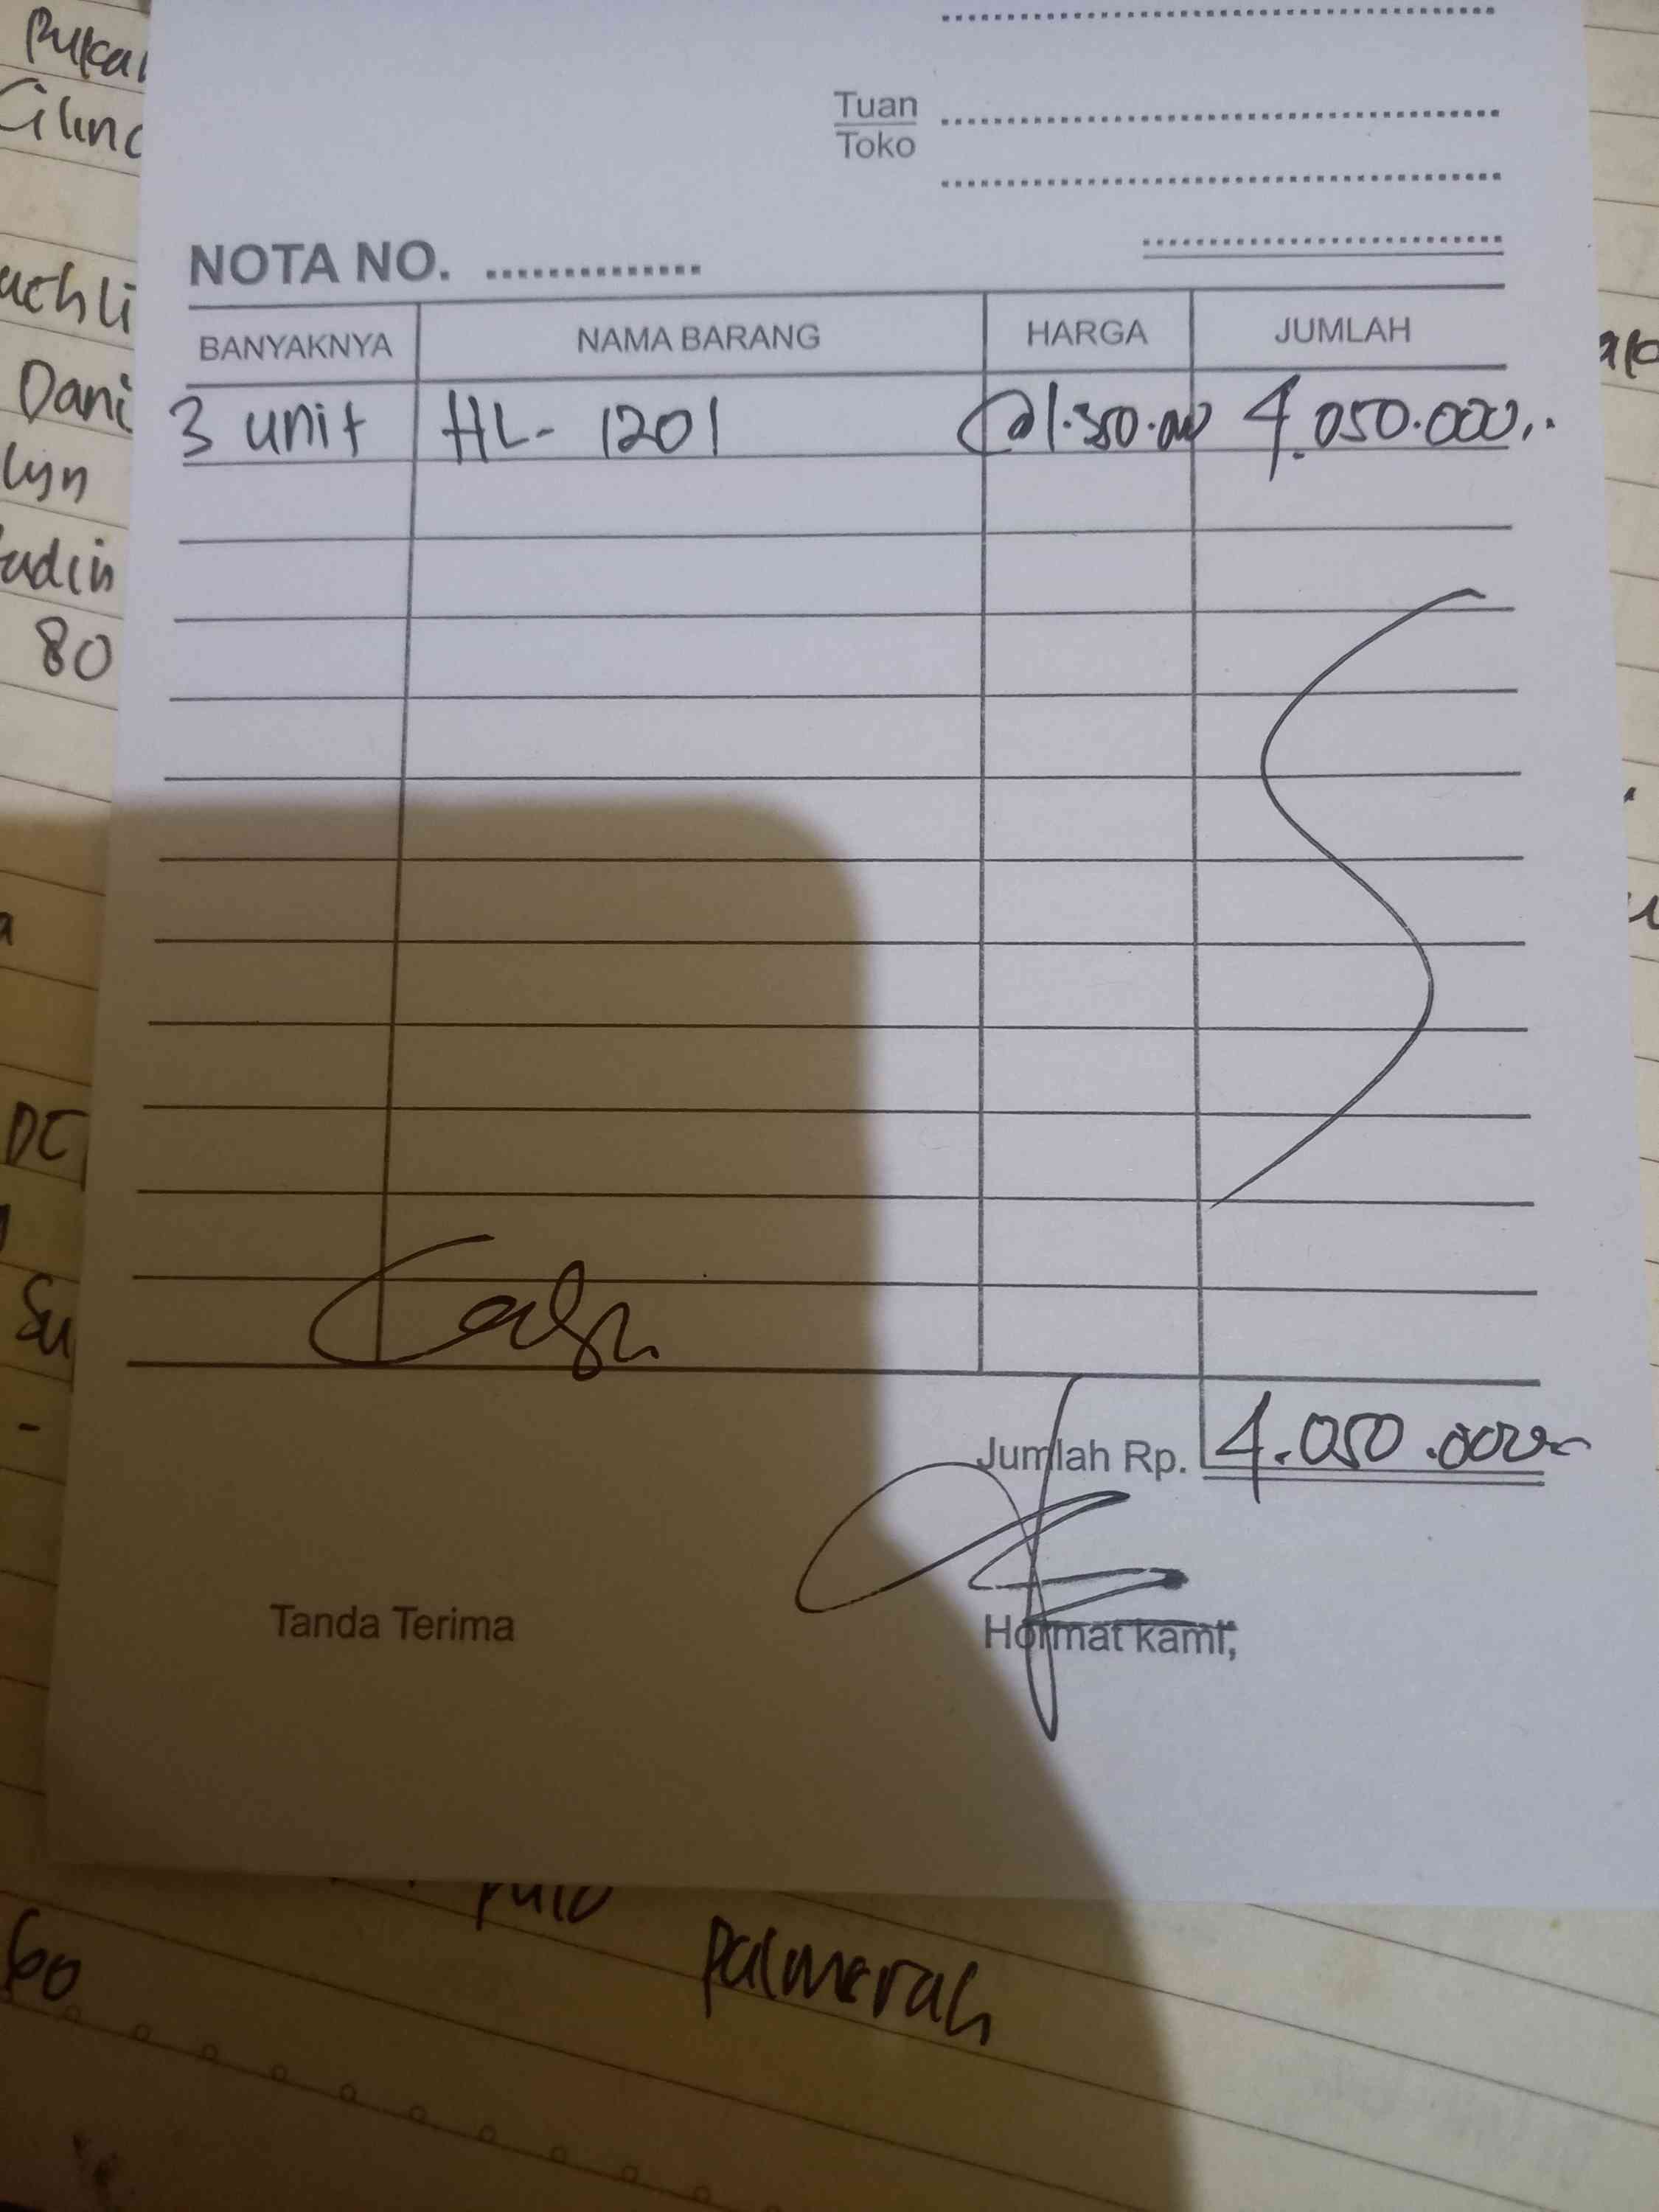 Tuan
Toko
NOTA NO. ..............
BANYAKNYA NAMA BARANG HARGA JUMLAH
3 unit HL- 1201 @1.350.000 4.050.000,-
Cash
Jumlah Rp. 4.050.000,-
Tanda Terima Hormat kami,
Dani
lyn
80
DC
Su
-
60
palmerah